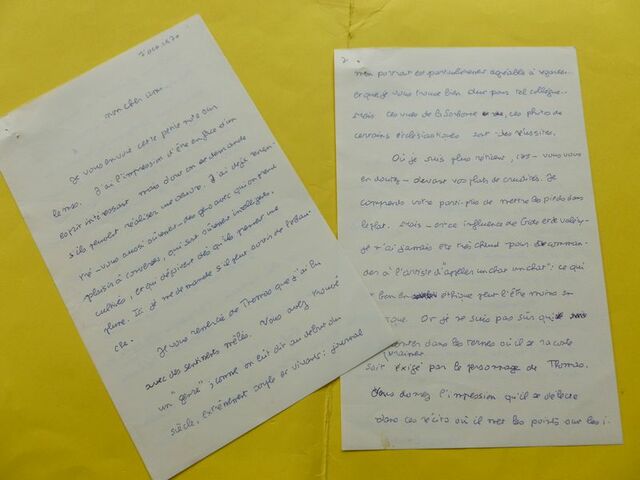 7 oct 1970
mon cher ami,
Je vous envoie cette petite note sur
le mso. J'ai l'impression d'être en face d'un
esprit intéressant mais dont on se demande
s'ils peuvent réaliser une œuvre. J'ai déjà rencon-
tré - vous aussi sûrement - des gens avec qui on prend
plaisir à converser, qui sont sûrement intelligents,
cultivés, et qui déçoivent dès qu'ils prennent une
plume. Ici je me demande s'il peut sortir de l'ébau-
che.
Je vous remercie de Thomas que j'ai lu
avec des sentiments mêlés. Vous avez trouvé
un "genre", comme on eût dit au début du
siècle, extrêmement souple et vivant : journal
2.
mon portrait est particulièrement agréable à regarder
et que je vous trouve bien dur pour tel collègue.
Mais ces vues de la Sorbonne, ces photos de
certains ecclésiastiques sont des réussites.
Où je suis plus réticent, c'est - vous vous
en doutez - devant vos plats de crudités. Je
comprends votre parti-pris de mettre les pieds dans
le plat. Mais - est-ce influence de Gide et de Valéry -
je n'ai jamais été très chaud pour recomman-
der à l'artiste d'"appeler un chat un chat" : ce qui
est bon en éthique peut l'être moins en
Or je ne suis pas sûr qu'
dans les termes où il se raconte
soit vraiment exigé par le personnage de Thomas.
Vous donnez l'impression qu'il se délecte
dans ces récits où il met les points sur les i.